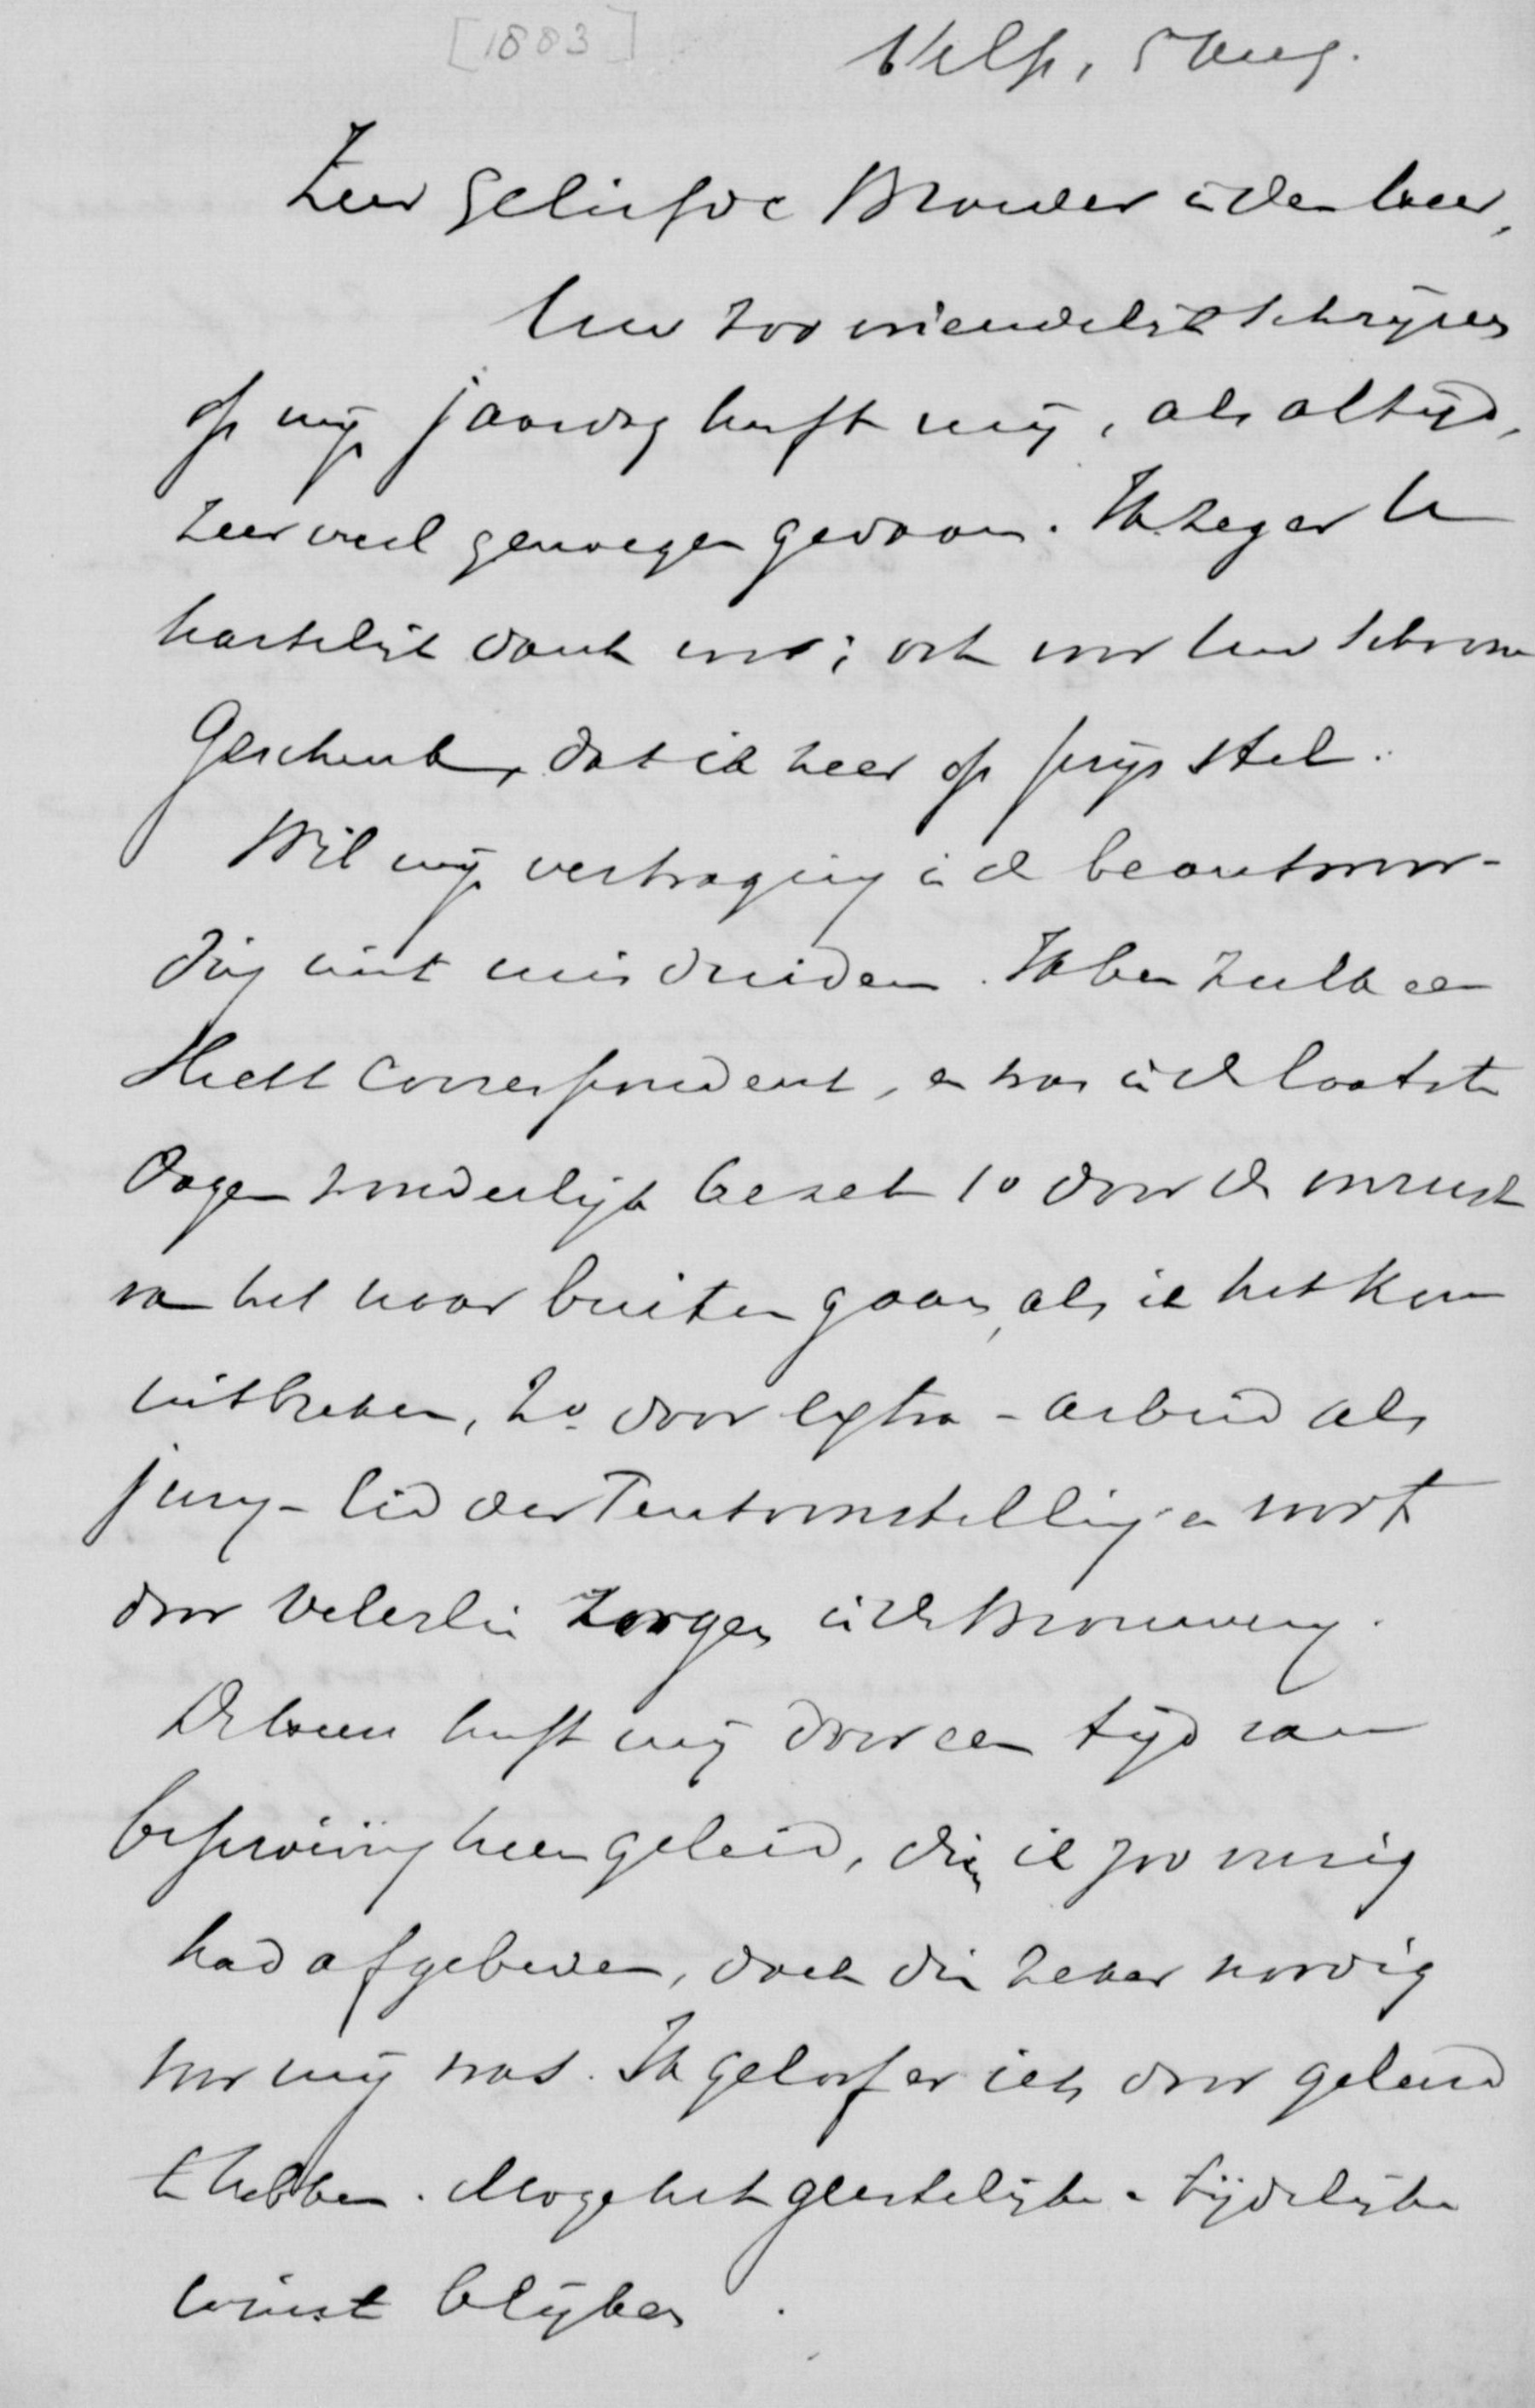 [1883]
Velp, 5 Aug.
Zeer geliefde Broeder in den heer,
Uw zoo vriendelijk schrijven
op mijn jaardag heeft mij, als altijd,
zeer veel genoegen gedaan. Ik zeg er U
hartelijk dank voor; ook voor Uw schoone
Geschenk, dat ik zeer op prijs stel.
Wil mijn vertraging in de beantwoor-
ding niet misduiden. Ik ben zulk een
slecht Correspondent, en was in de laatste
dagen zonderlijk bezet 1o door de onrust
van het naar buiten gaan, als ik het kan
uitbreken, 2o door extra-arbeid als
jury-lid der Tentoonstelling en voorts
door velerlei zorgen in de Brouwerij.
De heer heeft mij door een tijd van
beproeving heen geleid, dien ik zoo vurig
had afgebeden, doch die zeker noodig
voor mij was. Ik geloof er iets door geleerd
te hebben. Moge het geestelijke en tijdelijke
winst blijken.